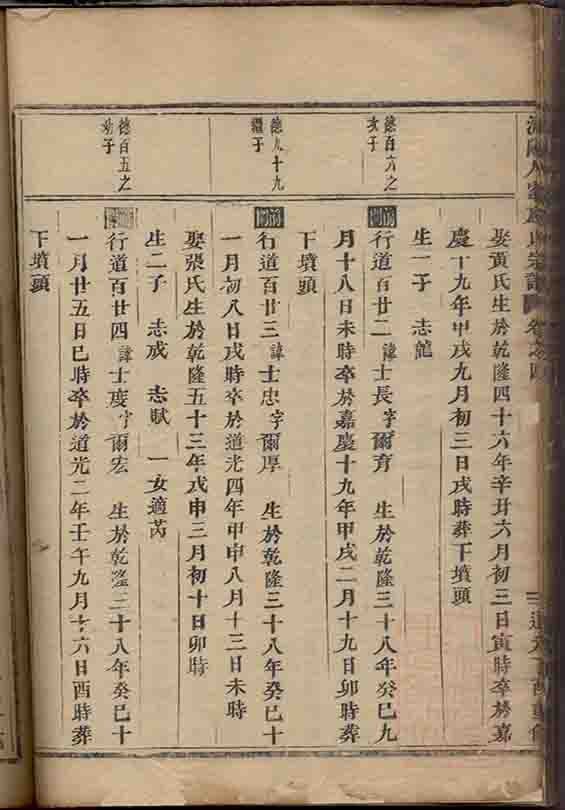 娶黃氏生於乾隆四十六年辛丑六月初三日寅時卒於嘉
慶十九年甲戌九月初三日戌時葬下墳頭
生一子 志
德百六之
次子
行道百廿二諱士長字爾育 生於乾隆三十八年癸巳九
月十八日未時卒於嘉慶十九年甲戌二月十九日卯時葬
下墳頭
德九十九
繼子
行道百廿三諱士忠字爾厚 生於乾隆三十八年癸巳十
一月初八日戌時卒於道光四年甲申八月十三日未時
娶張氏生於乾隆五十三年戊申三月初十日卯時
生二子 志成 志賦 一女適芮
德百五之
幼子
行道百廿四諱士度字爾宏 生於乾隆三十八年癸巳十
一月廿五日巳時卒於道光二年壬午九月十六日酉時葬
下墳頭